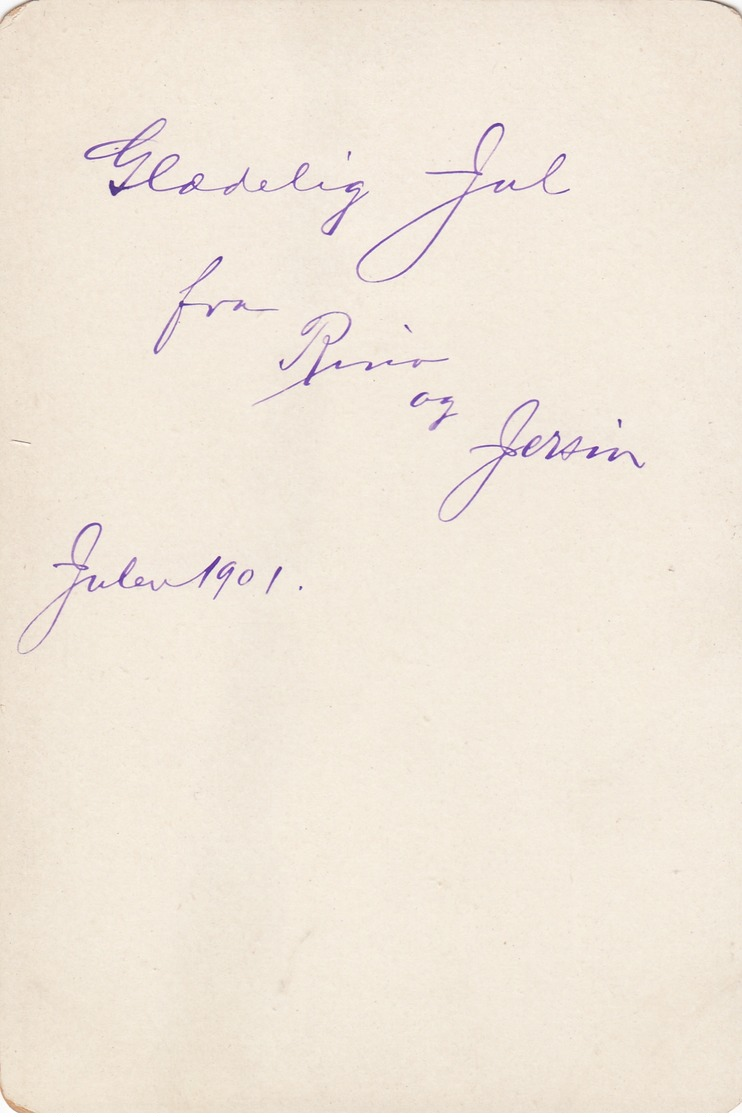 Glædelig Jul
fra
og
Jersin
Julen 1901.